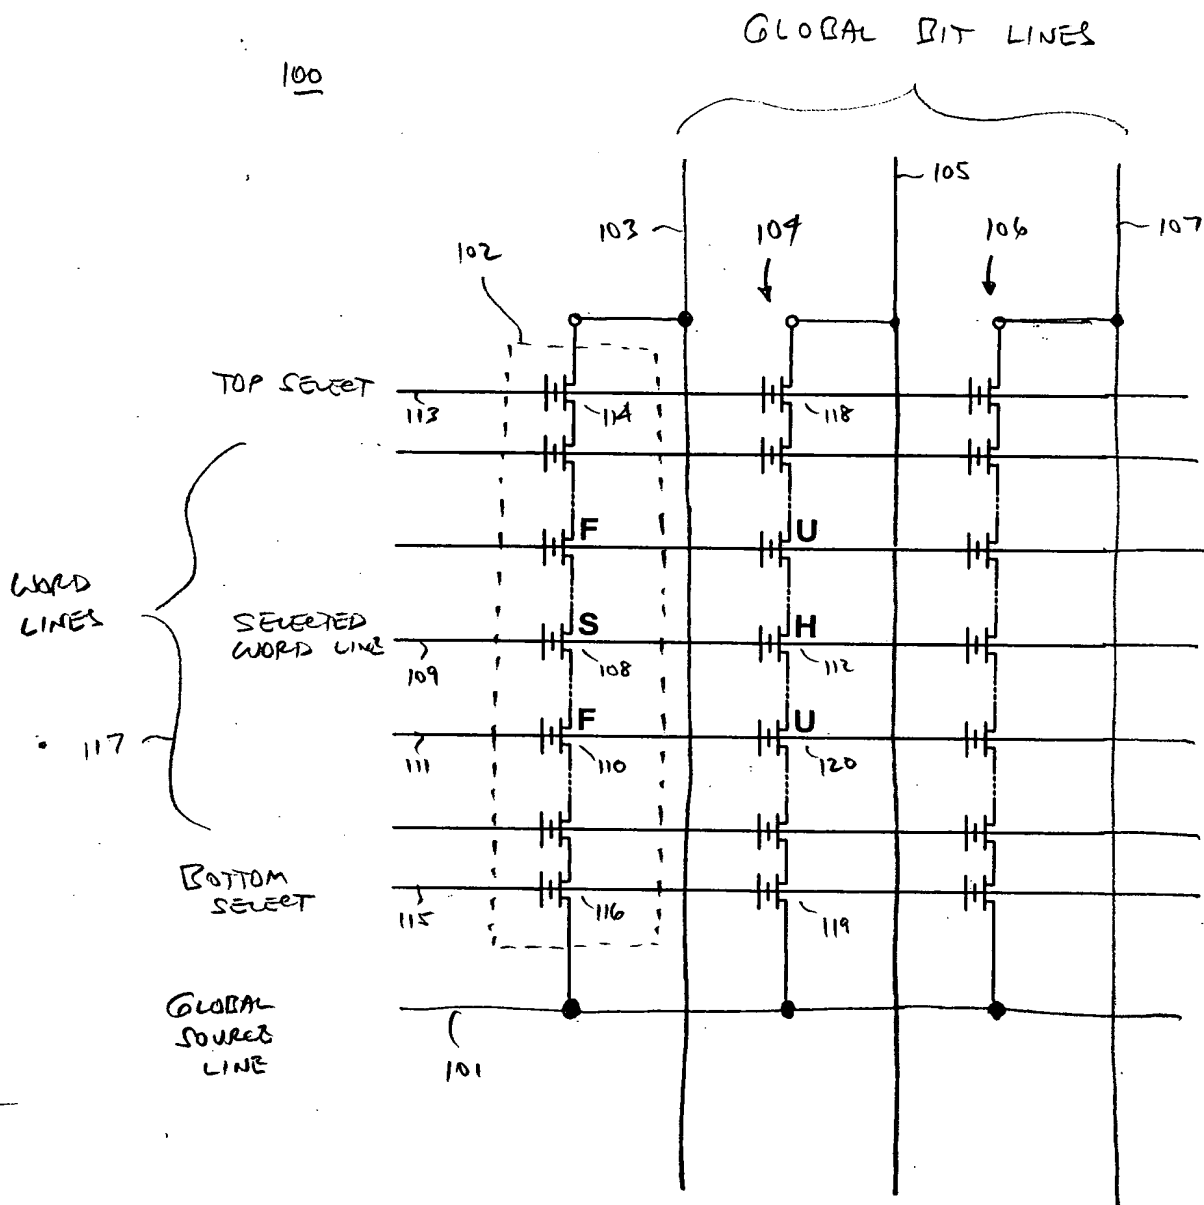 GLOBAL BIT LINES
100
105
103
104
106
107
102
TOP SELECT
113
114
118
F
U
WORD
LINES
SELECTED
WORD LINE
S
H
109
108
112
117
F
U
111
110
120
BOTTOM
SELECT
115
116
119
GLOBAL
SOURCE
LINE
101